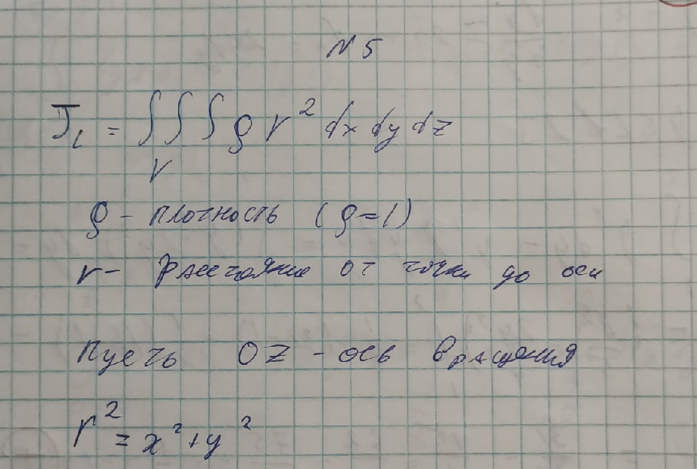 N 5
J_l = ∫∫∫_V ρ r² dx dy dz
ρ - плотность (ρ=1)
r - расстояние от точки до оси
Пусть OZ - ось вращения
r² = x² + y²